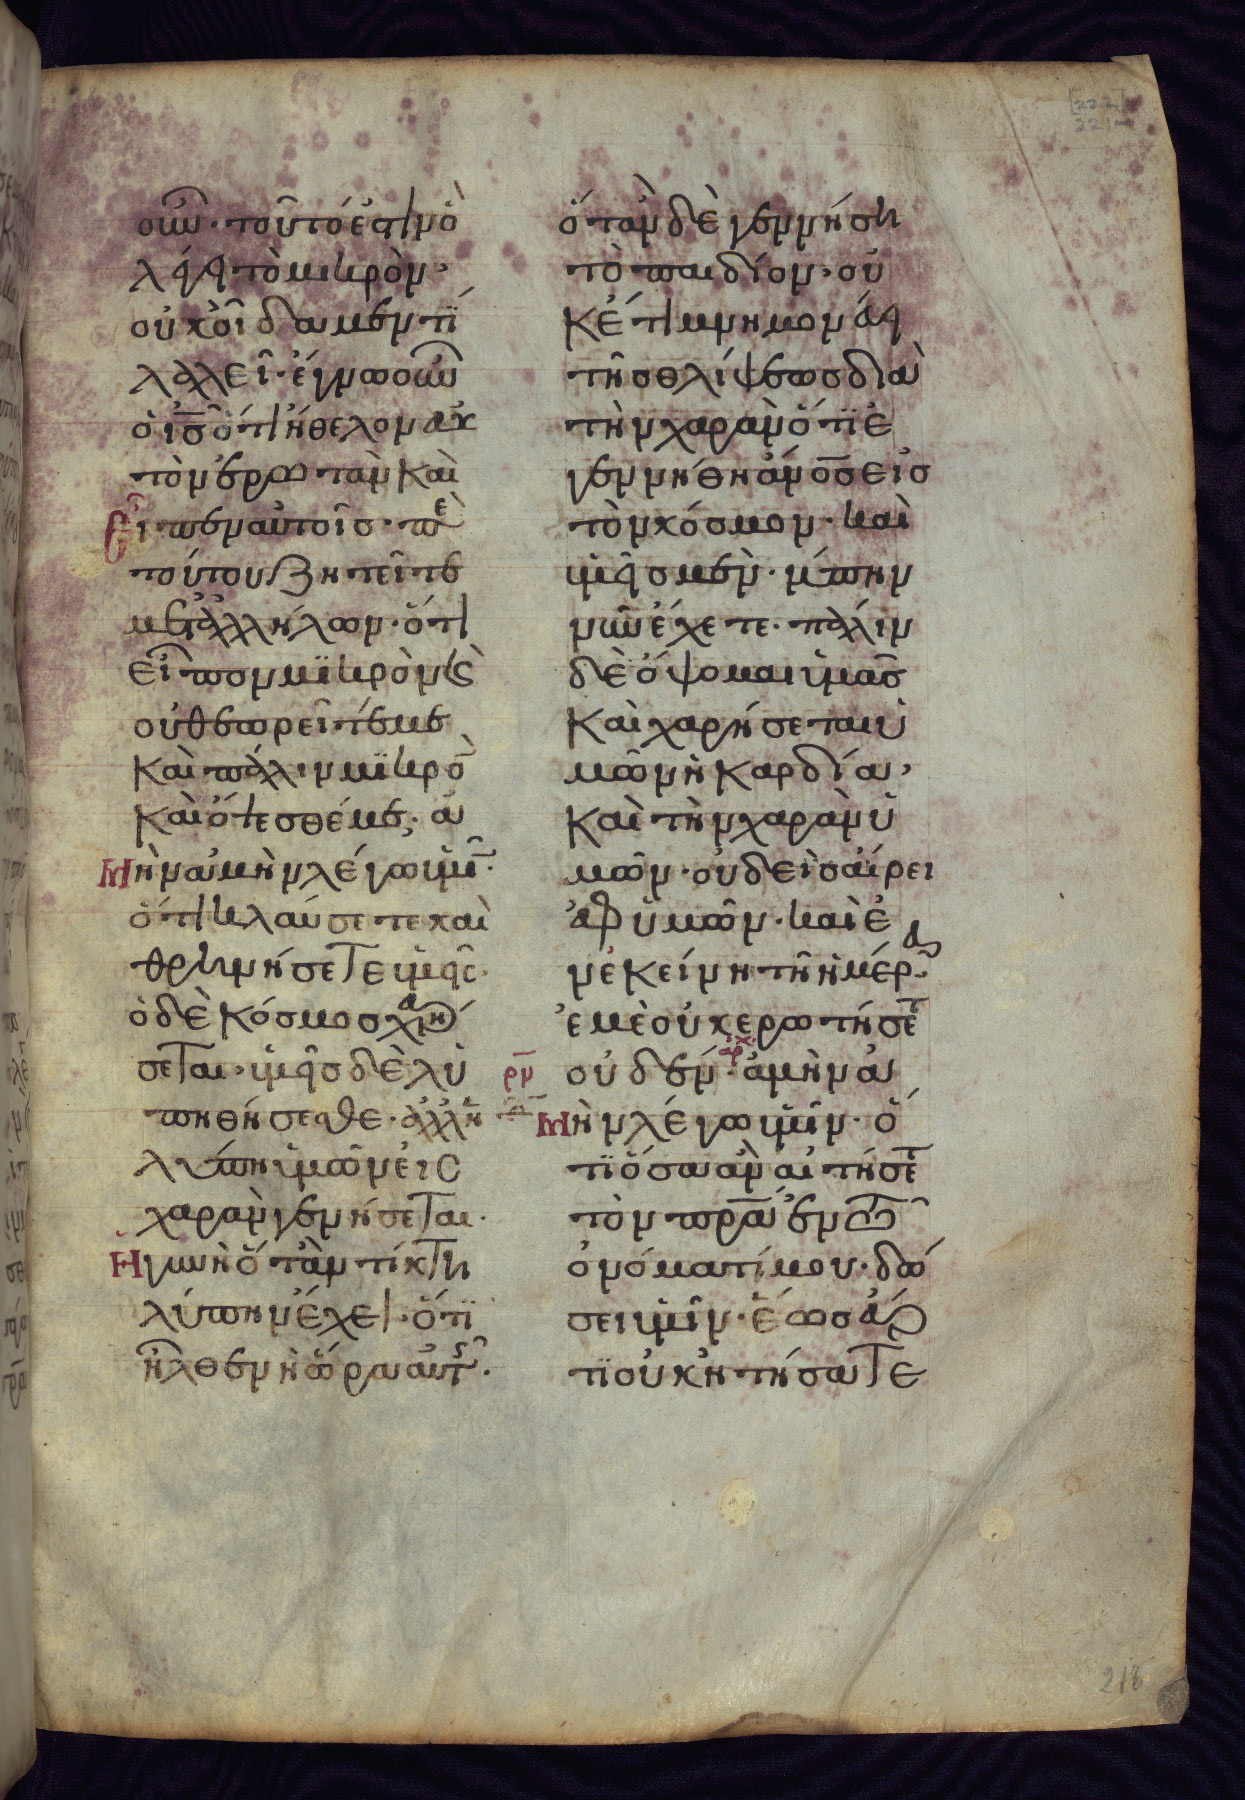 οῦν· τοῦτό ἐστιν ὃ
λέγει τὸ μικρὸν·
οὐκ οἴδαμεν τί
λαλεῖ· ἔγνω οὖν
ὁ ις ὅτι ἤθελον αὐ
τὸν ἐρωτᾶν καὶ
εἶπεν αὐτοῖς· πε
τούτου ζητεῖτε
μετ ἀλλήλων· ὅτι
εἶπον μικρὸν κ
οὐ θεωρεῖτέ με
καὶ πάλιν μικρὸ
καὶ ὄψεσθέ με· ἀ
μὴν ἀμὴν λέγω ὑμῖ·
ὅτι κλαύσετε καὶ
θρηνήσετε ὑμεῖς·
ὁ δὲ κόσμος χαρή
σεται· ὑμεῖς δὲ λυ
πηθήσεσθε· ἀλλ ἡ
λύπη ὑμῶν εἰς
χαρὰν γενήσεται·
Ἡ γυνὴ ὅταν τίκτη
λύπην ἔχει· ὅτι
ἦλθεν ἡ ὥρα αὐτῆς·
ὅταν δὲ γεννήση
τὸ παιδίον· οὐ
κέτι μνημονεύει
τῆς θλίψεως διὰ
τὴν χαρὰν ὅτι ἐ
γεννήθη ανος εἰς
τὸν κόσμον· καὶ
ὑμεῖς μὲν· λύπην
νῦν ἔχετε· πάλιν
δὲ ὄψομαι ὑμᾶς
καὶ χαρήσεται ὑ
μῶν ἡ καρδία·
καὶ τὴν χαρὰν ὑ
μῶν· οὐδεὶς αἴρει
ἀφ ὑμῶν· καὶ ἐ
ν ἐκείνη τῆ ἡμέρα·
ἐμὲ οὐκ ἐρωτήσετ
ρν
οὐδέν· αρχ ἀμὴν ἀ
μὴν λέγω ὑμῖν· ὅ
τι ὅσα ἂν αἰτήσετ
τὸν πρα ἐν τῶ
ὀνόματί μου· δώ
σει ὑμῖν· ἕως ἄρ
τι οὐκ ἠτήσατε
218